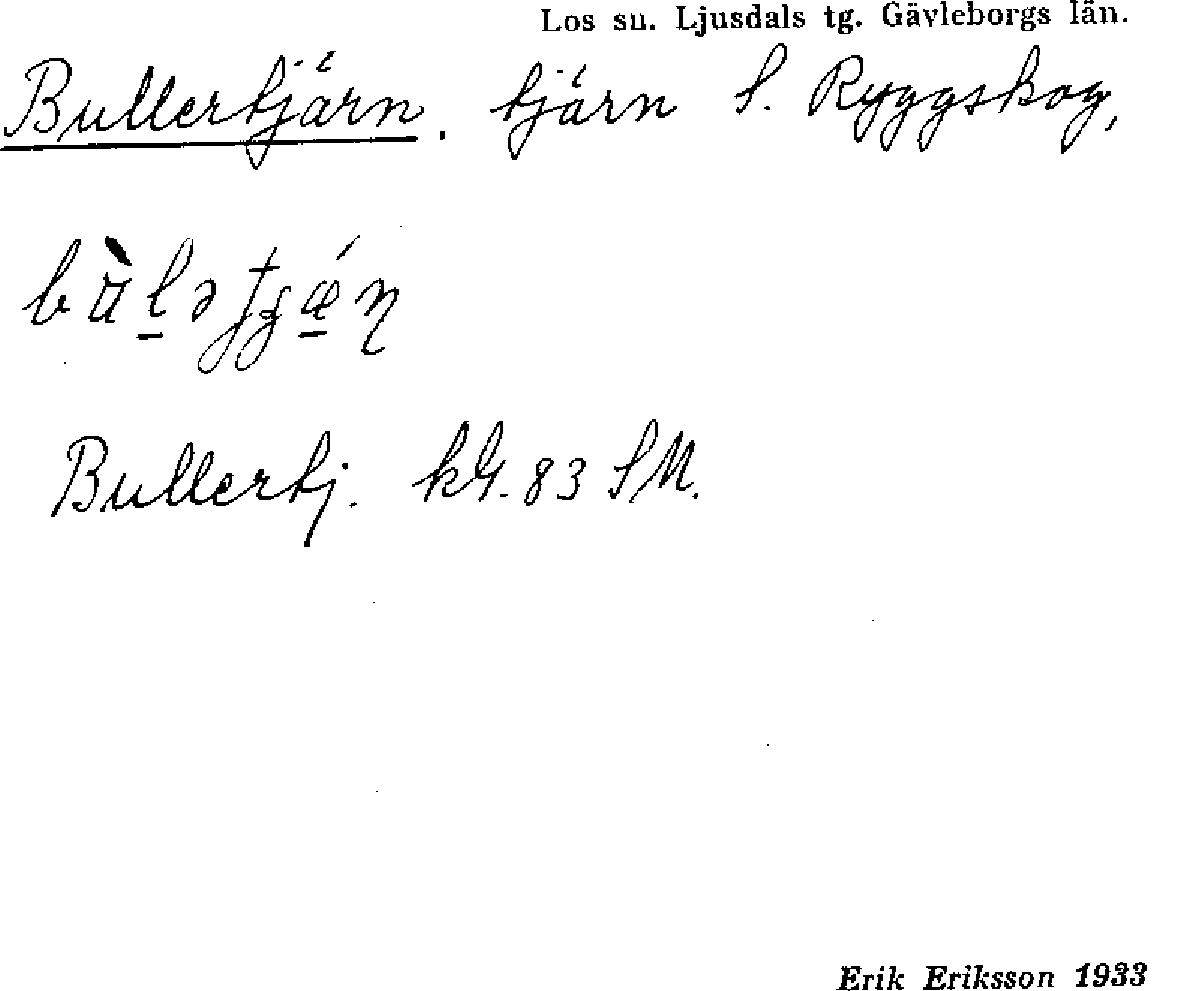 Los sn. Ljusdals tg. Gävleborgs län.
Bullertjärn. tjärn S. Ryggskog,
Bullertj. kbl. 83 SM.
Erik Eriksson 1933